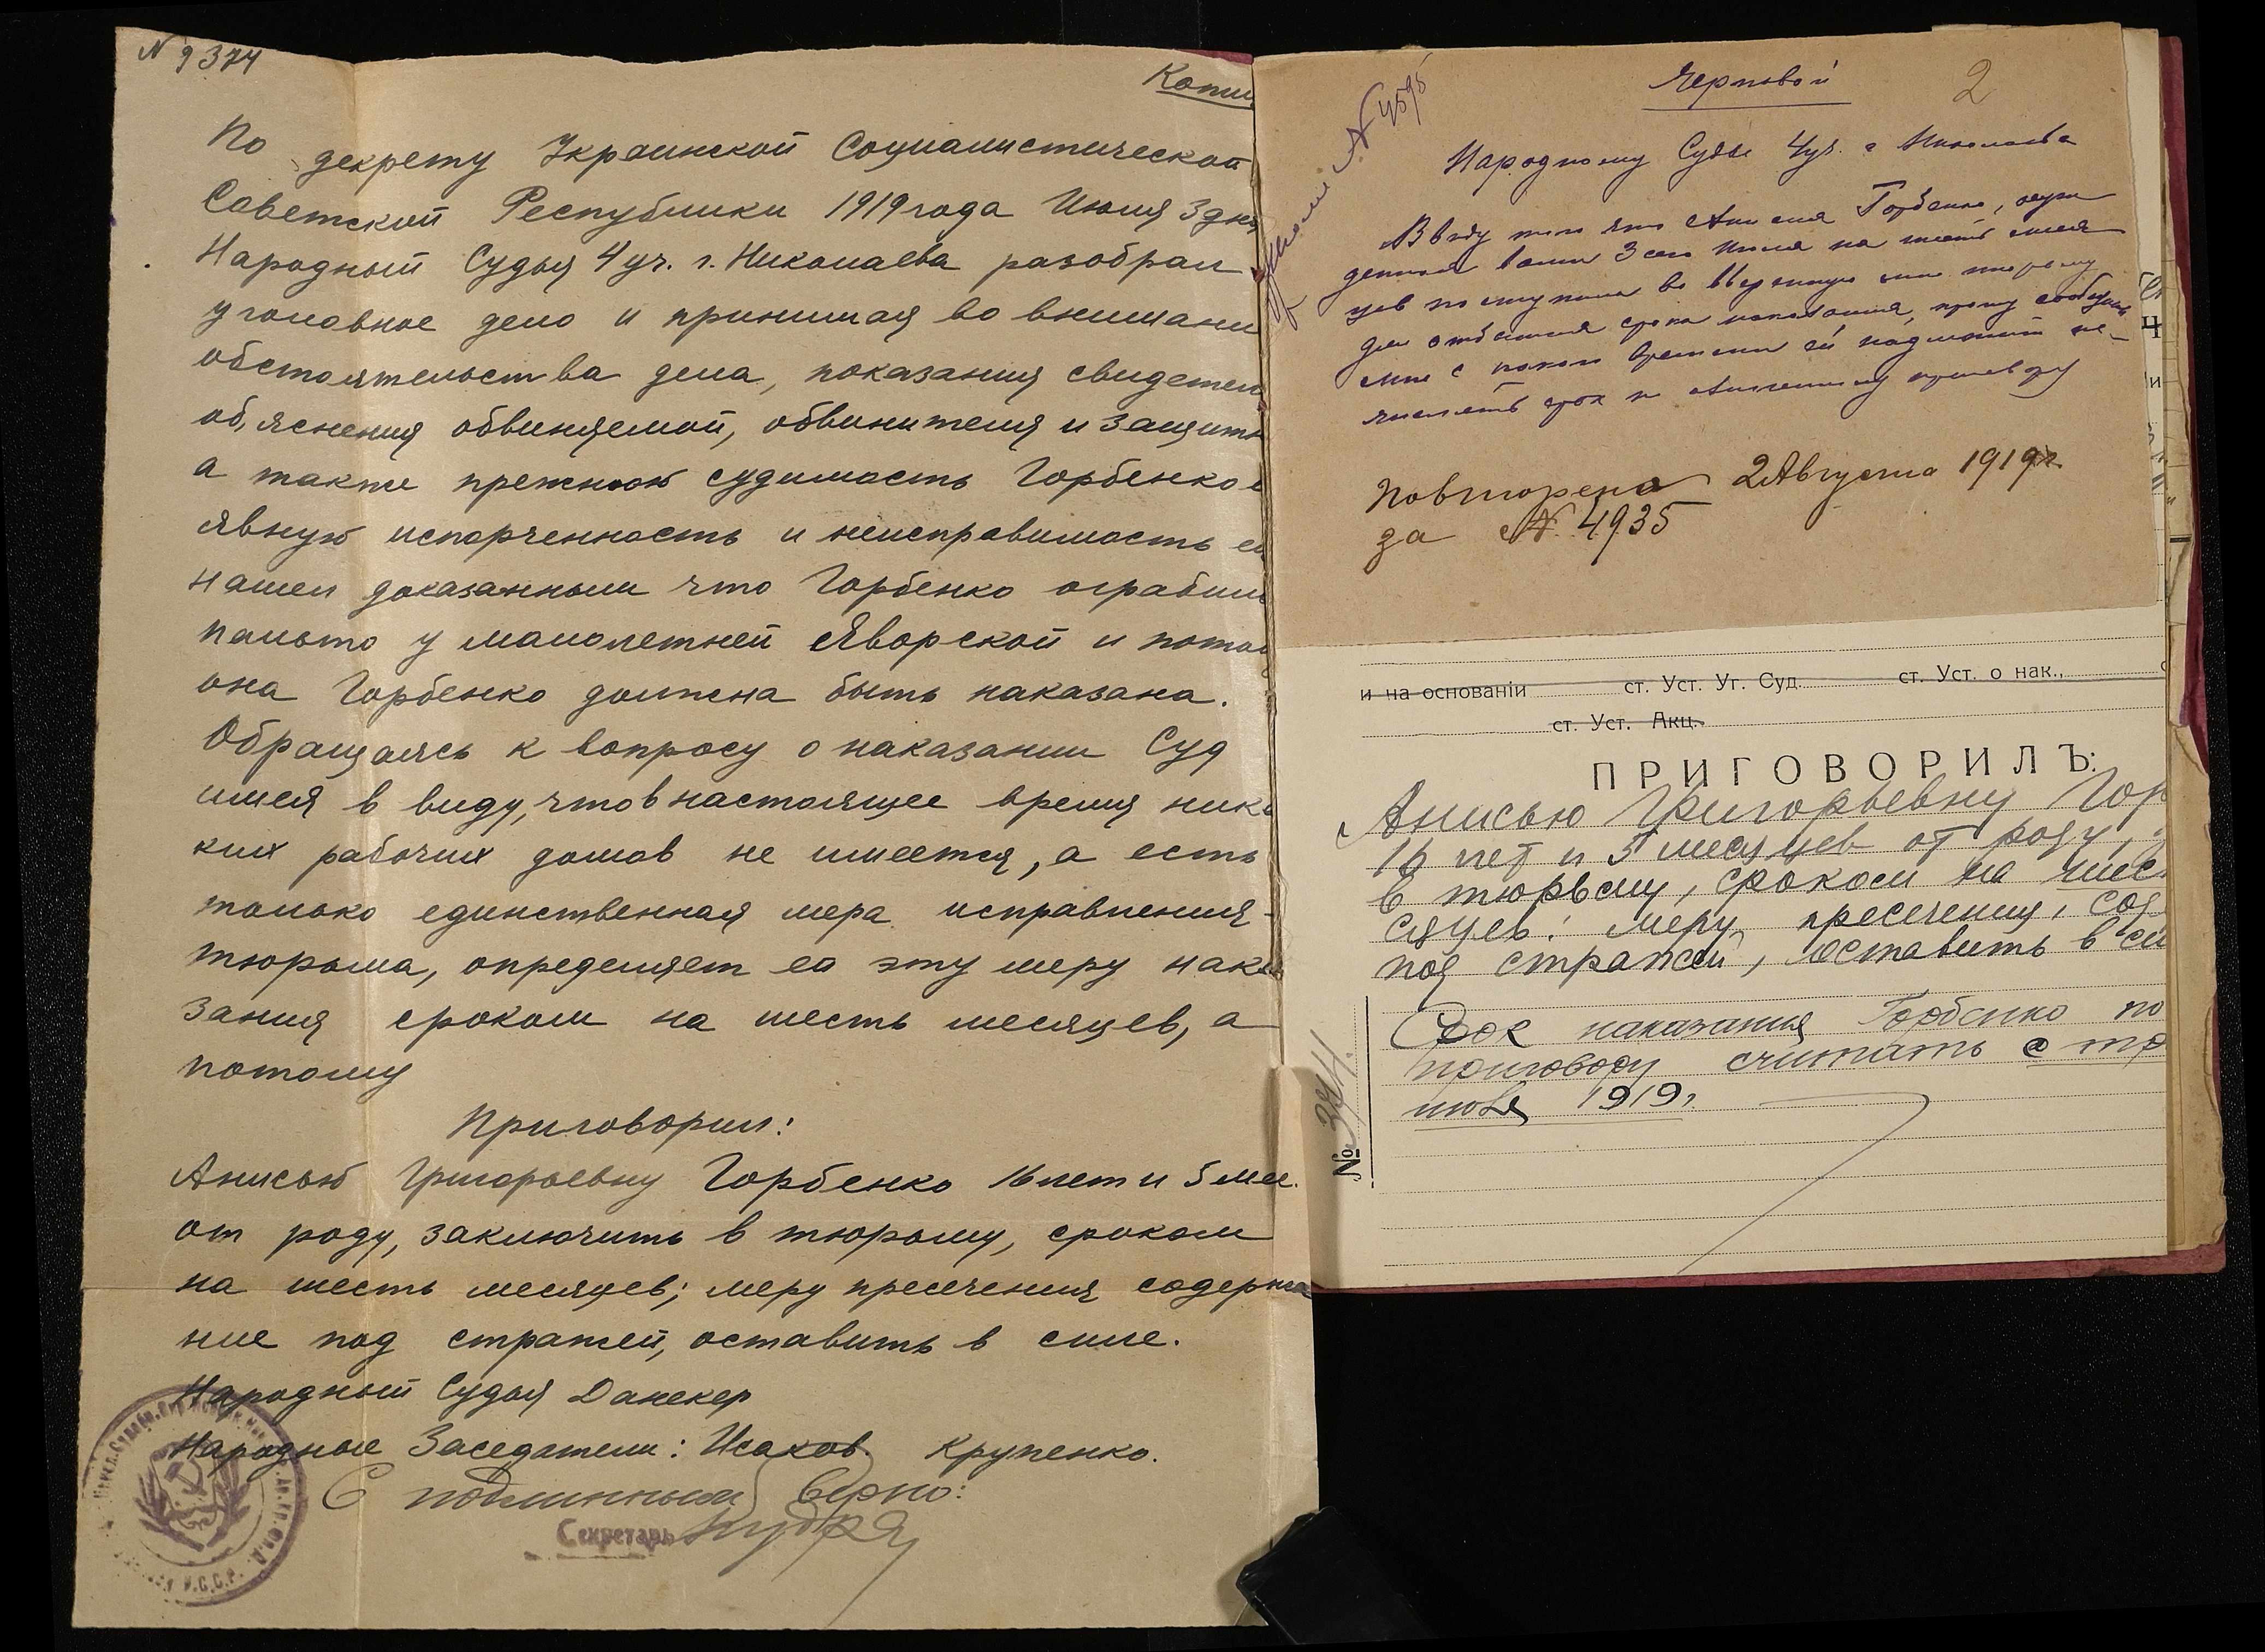 N 9374
Копи
По декрету Украинской Социалистической
Советской Республики 1919 года Июля 3 дня
Народный Судья 4 уч. г. Николаева разобрал
уголовное дело и принимая во внимани
обстоятельства дела, показания свидетел
об,яснения обвиняемой, обвинителя и защиты
а также прежнюю судимость Горбенко и
явную испорченность и неисправимость ея
нашел доказанным что Горбенко ограбила
пальто у малолетней Яворской и потому
она Горбенко должна быть наказана.
Обращаясь к вопросу о наказании Суд
имея в виду, что в настоящее время ника
ких рабочих домов не имеется, а есть
только единственная мера исправления-
тюрьма, определяет ея эту меру нака
зания сроком на шесть месяцев, а
потому
Приговорил:
Анисью Григорьевну Горбенко 16 лет и 5 мес.
от роду, заключить в тюрьму, сроком
на шесть месяцев; меру пресечения содержа
ние под стражей, оставить в силе.
Народный Судья Данекер
Народные Заседатели: Исаков. Крупенко.
С подлинным верно:
Секретарь
У.С.С.Р.
Черновой
2
N 4595
Народному Судье 4 уч. г Николаева
Ввиду того что Анисия Горбенко, осуж
денная Вами 3 сего Июля на шесть меся
цев поступила во вверенную мне тюрьму
для отбытия срока наказания, прошу сообщить
мне с какого времени ей надлежит ис-
числять срок по означенному приговору
Повторена 2 Августа 1919 г.
за N 4935
и на основаніи ст. Уст. Уг. Суд. ст. Уст. о нак.,
ст. Уст. Акц.
ПРИГОВОРИЛЪ:
Анисью Григорьевну Гор
16 лет и 5 месяцев от роду,
в тюрьму, сроком на шес
сяцев: меру пресечения, сод
под стражей, оставить в си
Срок наказания Горбенко по
приговору считать с тр
июля 1919,
№